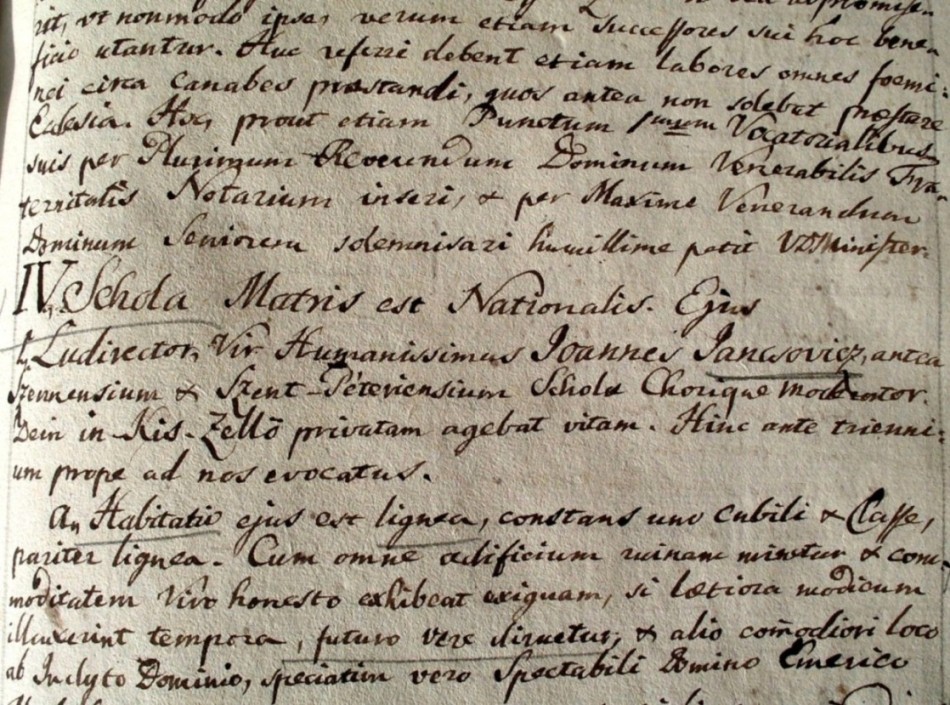 rit, ut nonmodo ipse, verum etiam successores sui hoc bene-
ficio utantur. Huc referri debent etiam labores omnes foemi-
nei circa canabes præstandi, quos antea non solebat præstare
Eclesia. Hoc, prout etiam Punctum Vocatorialibus
suis per Plurimum Reverendum Dominum Venerabilis Fra-
ternitatis Notarium inseri, & per Maxime Venerandum
Dominum Seniorem solemnisari humillime petit VDMinister.
IV. Schola Matris est Nationalis. Ejus
Ludirector, Vir Humanissimus Joannes Jancsovicz, antea
& Szent-Péteriensium Scholæ Chorique moderator.
Dein in Kis-Zellő privatam agebat vitam. Hinc ante trienni-
um prope ad nos evocatus.
Habitatio ejus est lignea, constans uno cubili & Classe,
pariter lignea. Cum omne ædificium ruinam minetur & com-
moditatem Viro honesto exhibeat exiguam, si lætiora modicum
illuxerint tempora, futuro vere diruetur, & alio com̄odiori loco
ab Inclyto Dominio, speciatim vero Spectabili Domino Emerico